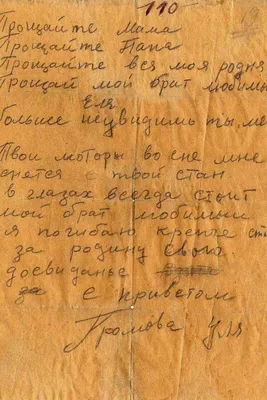 110
Прощайте Мама
Прощайте Папа
Прощайте вся моя родня
Прощай мой брат любимы
Еля
больше неувидишь ты, ме
Твои моторы во сне мне
снятся твой стан
в глазах всегда стоит
мой брат любимый
я погибаю крепче ст
за родину свою
досвиданье
с приветом
Громова Уля